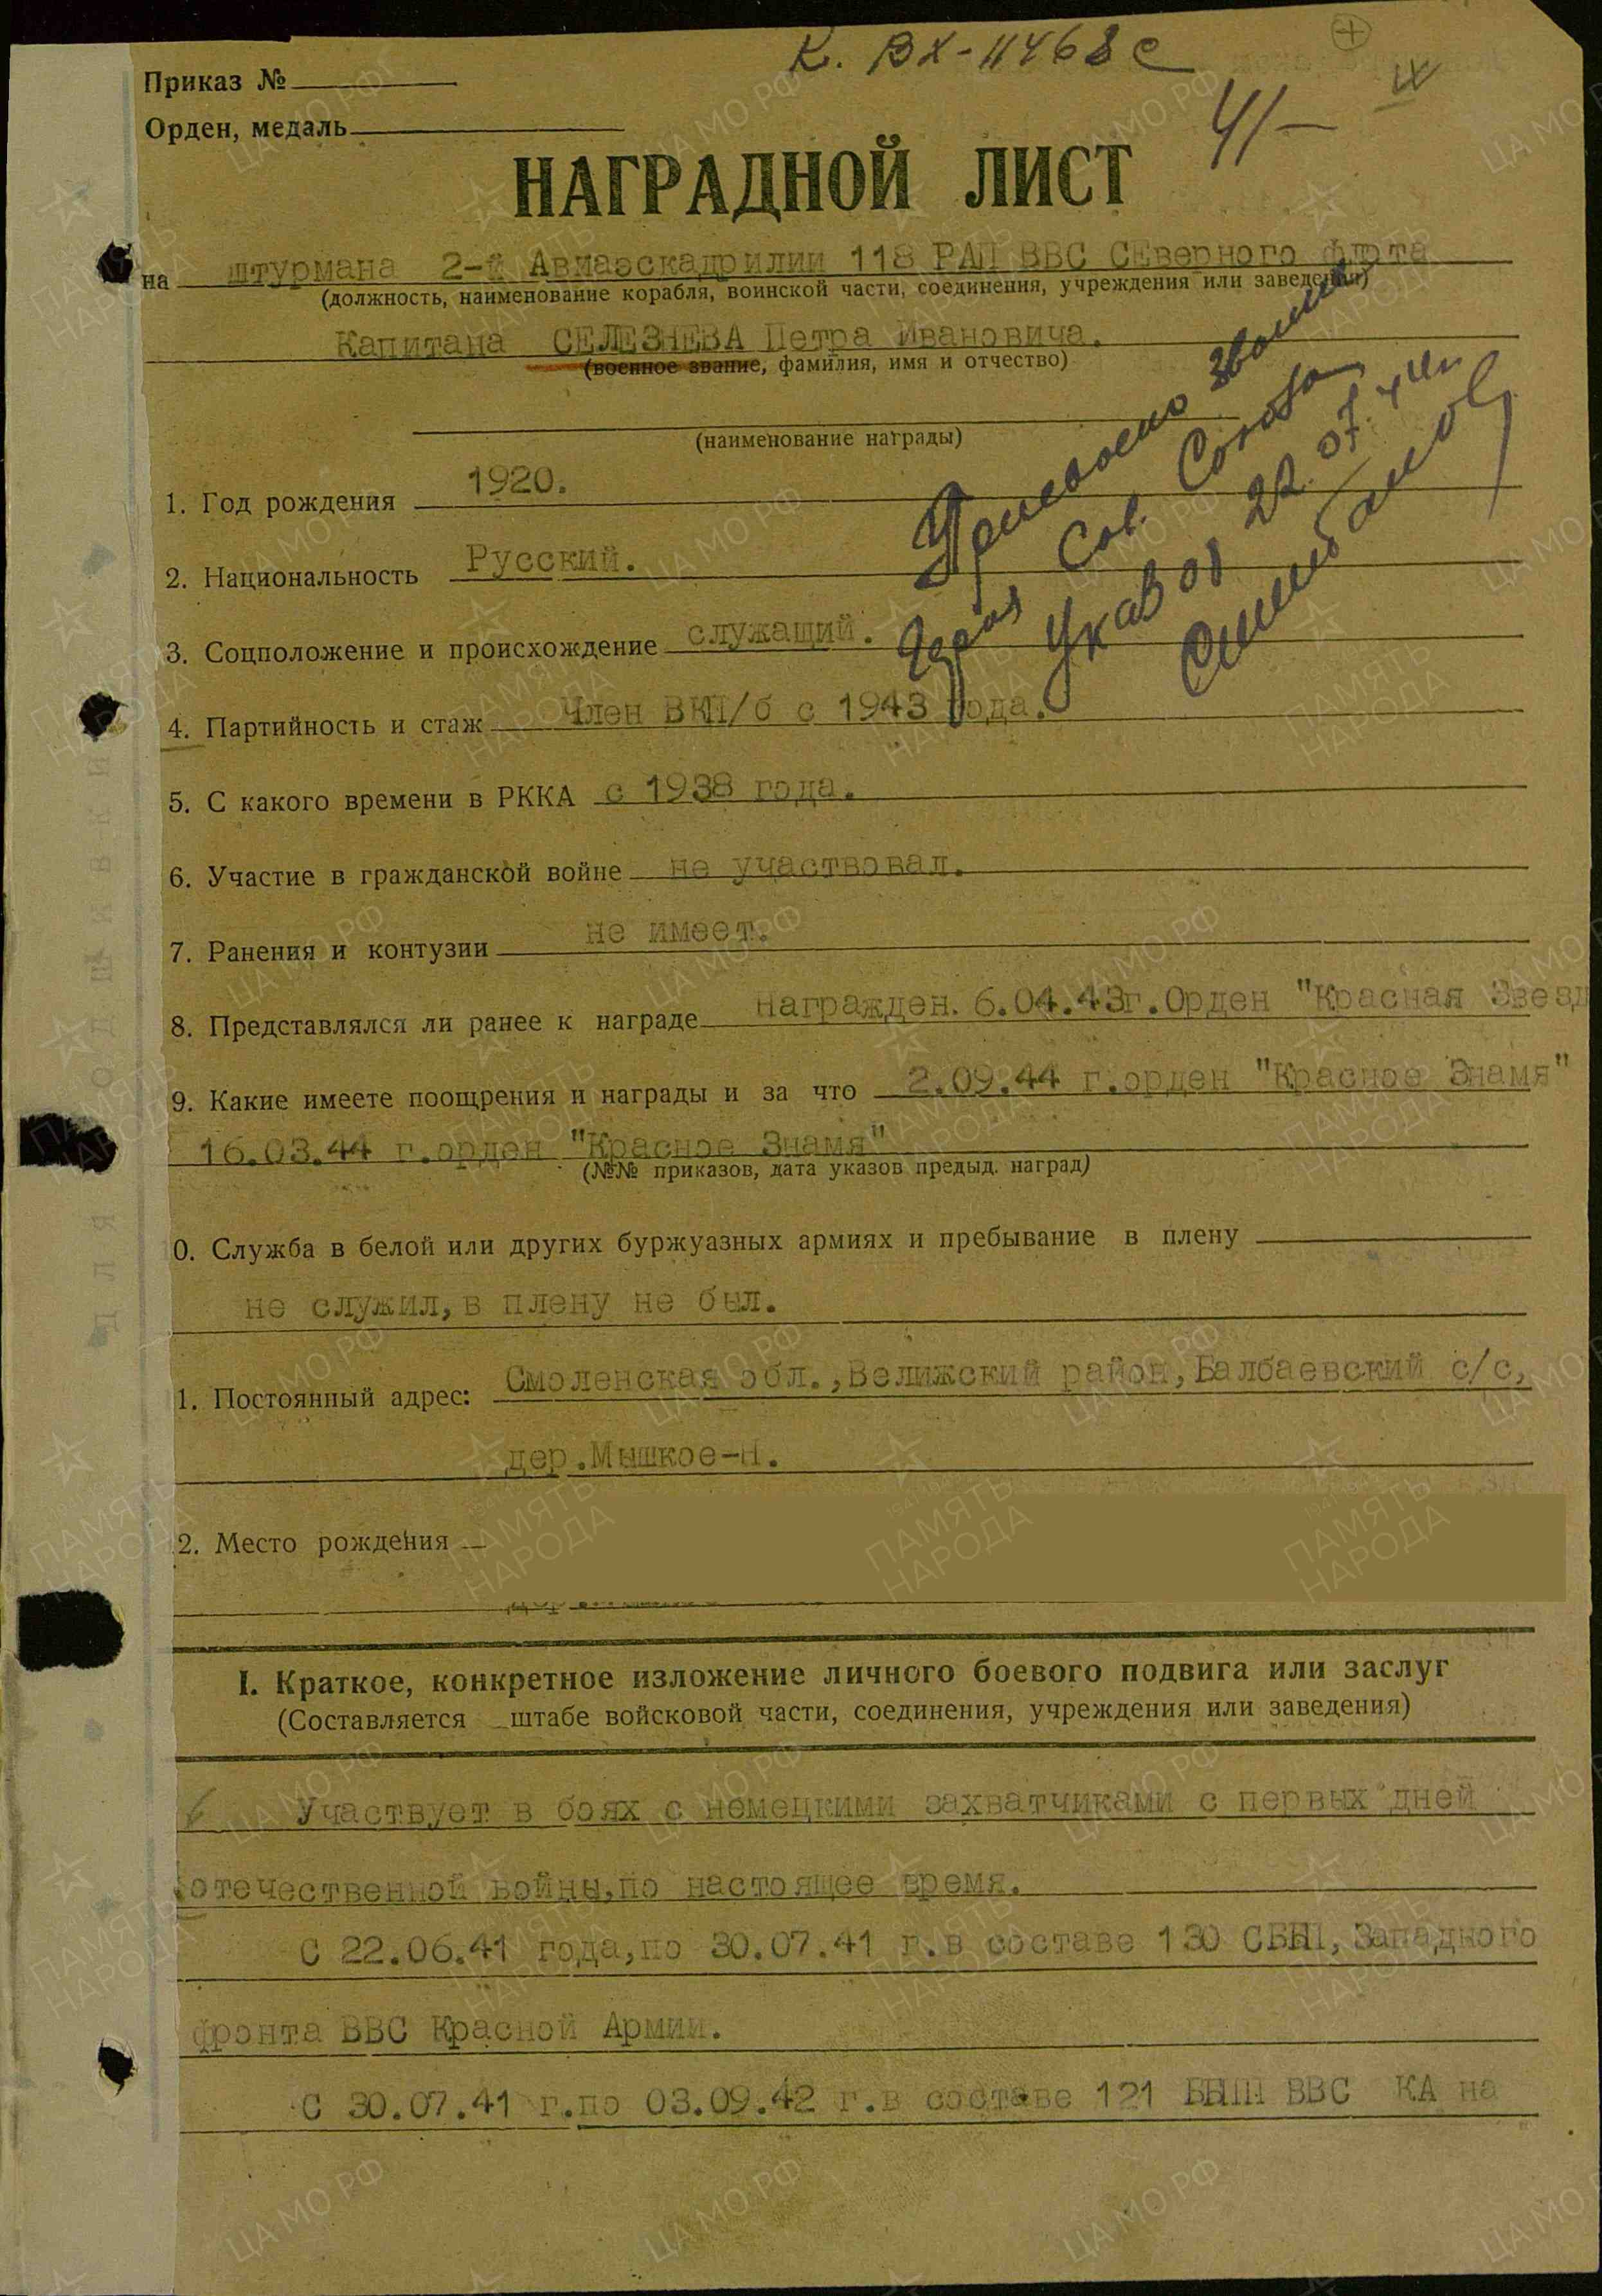 К. ВХ-11468с
Приказ №
4/-
Орден, медаль
НАГРАДНОЙ ЛИСТ
на штурмана 2-й Авиаэскадрилии 118 РАП ВВС СЕверного флота
(должность, наименование корабля, воинской части, соединения, учреждения или заведения)
Капитана СЕЛЕЗНЕВА Петра Ивановича.
(военное звание, фамилия, имя и отчество)
(наименование награды)
Присвоено звание
Героя Сов. Союза
Указ от 22.07.44г.
1. Год рождения 1920.
2. Национальность Русский.
3. Соцположение и происхождение служащий.
4. Партийность и стаж Член ВКП/б с 1943 года.
5. С какого времени в РККА с 1938 года.
6. Участие в гражданской войне не участвовал.
7. Ранения и контузии не имеет.
8. Представлялся ли ранее к награде Награжден. 6.04.43г.Орден "Красная Звезд
9. Какие имеете поощрения и награды и за что 2.09.44 г.орден "Красное Знамя"
16.03.44 г.орден "Красное Знамя"
(№№ приказов, дата указов предыд. наград)
0. Служба в белой или других буржуазных армиях и пребывание в плену
не служил, в плену не был.
1. Постоянный адрес: Смоленская обл., Велижский район, Балбаевский с/с,
дер.Мышкое-Н.
2. Место рождения
I. Краткое, конкретное изложение личного боевого подвига или заслуг
(Составляется штабе войсковой части, соединения, учреждения или заведения)
Участвует в боях с немецкими захватчиками с первых дней
отечественной войны,по настоящее время.
С 22.06.41 года,по 30.07.41 г.в составе 130 СББП, Западного
фронта ВВС Красной Армии.
С 30.07.41 г.по 03.09.42 г.в составе 121 ББАП ВВС КА на
ПАМЯТЬ НАРОДА
ЦА МО РФ